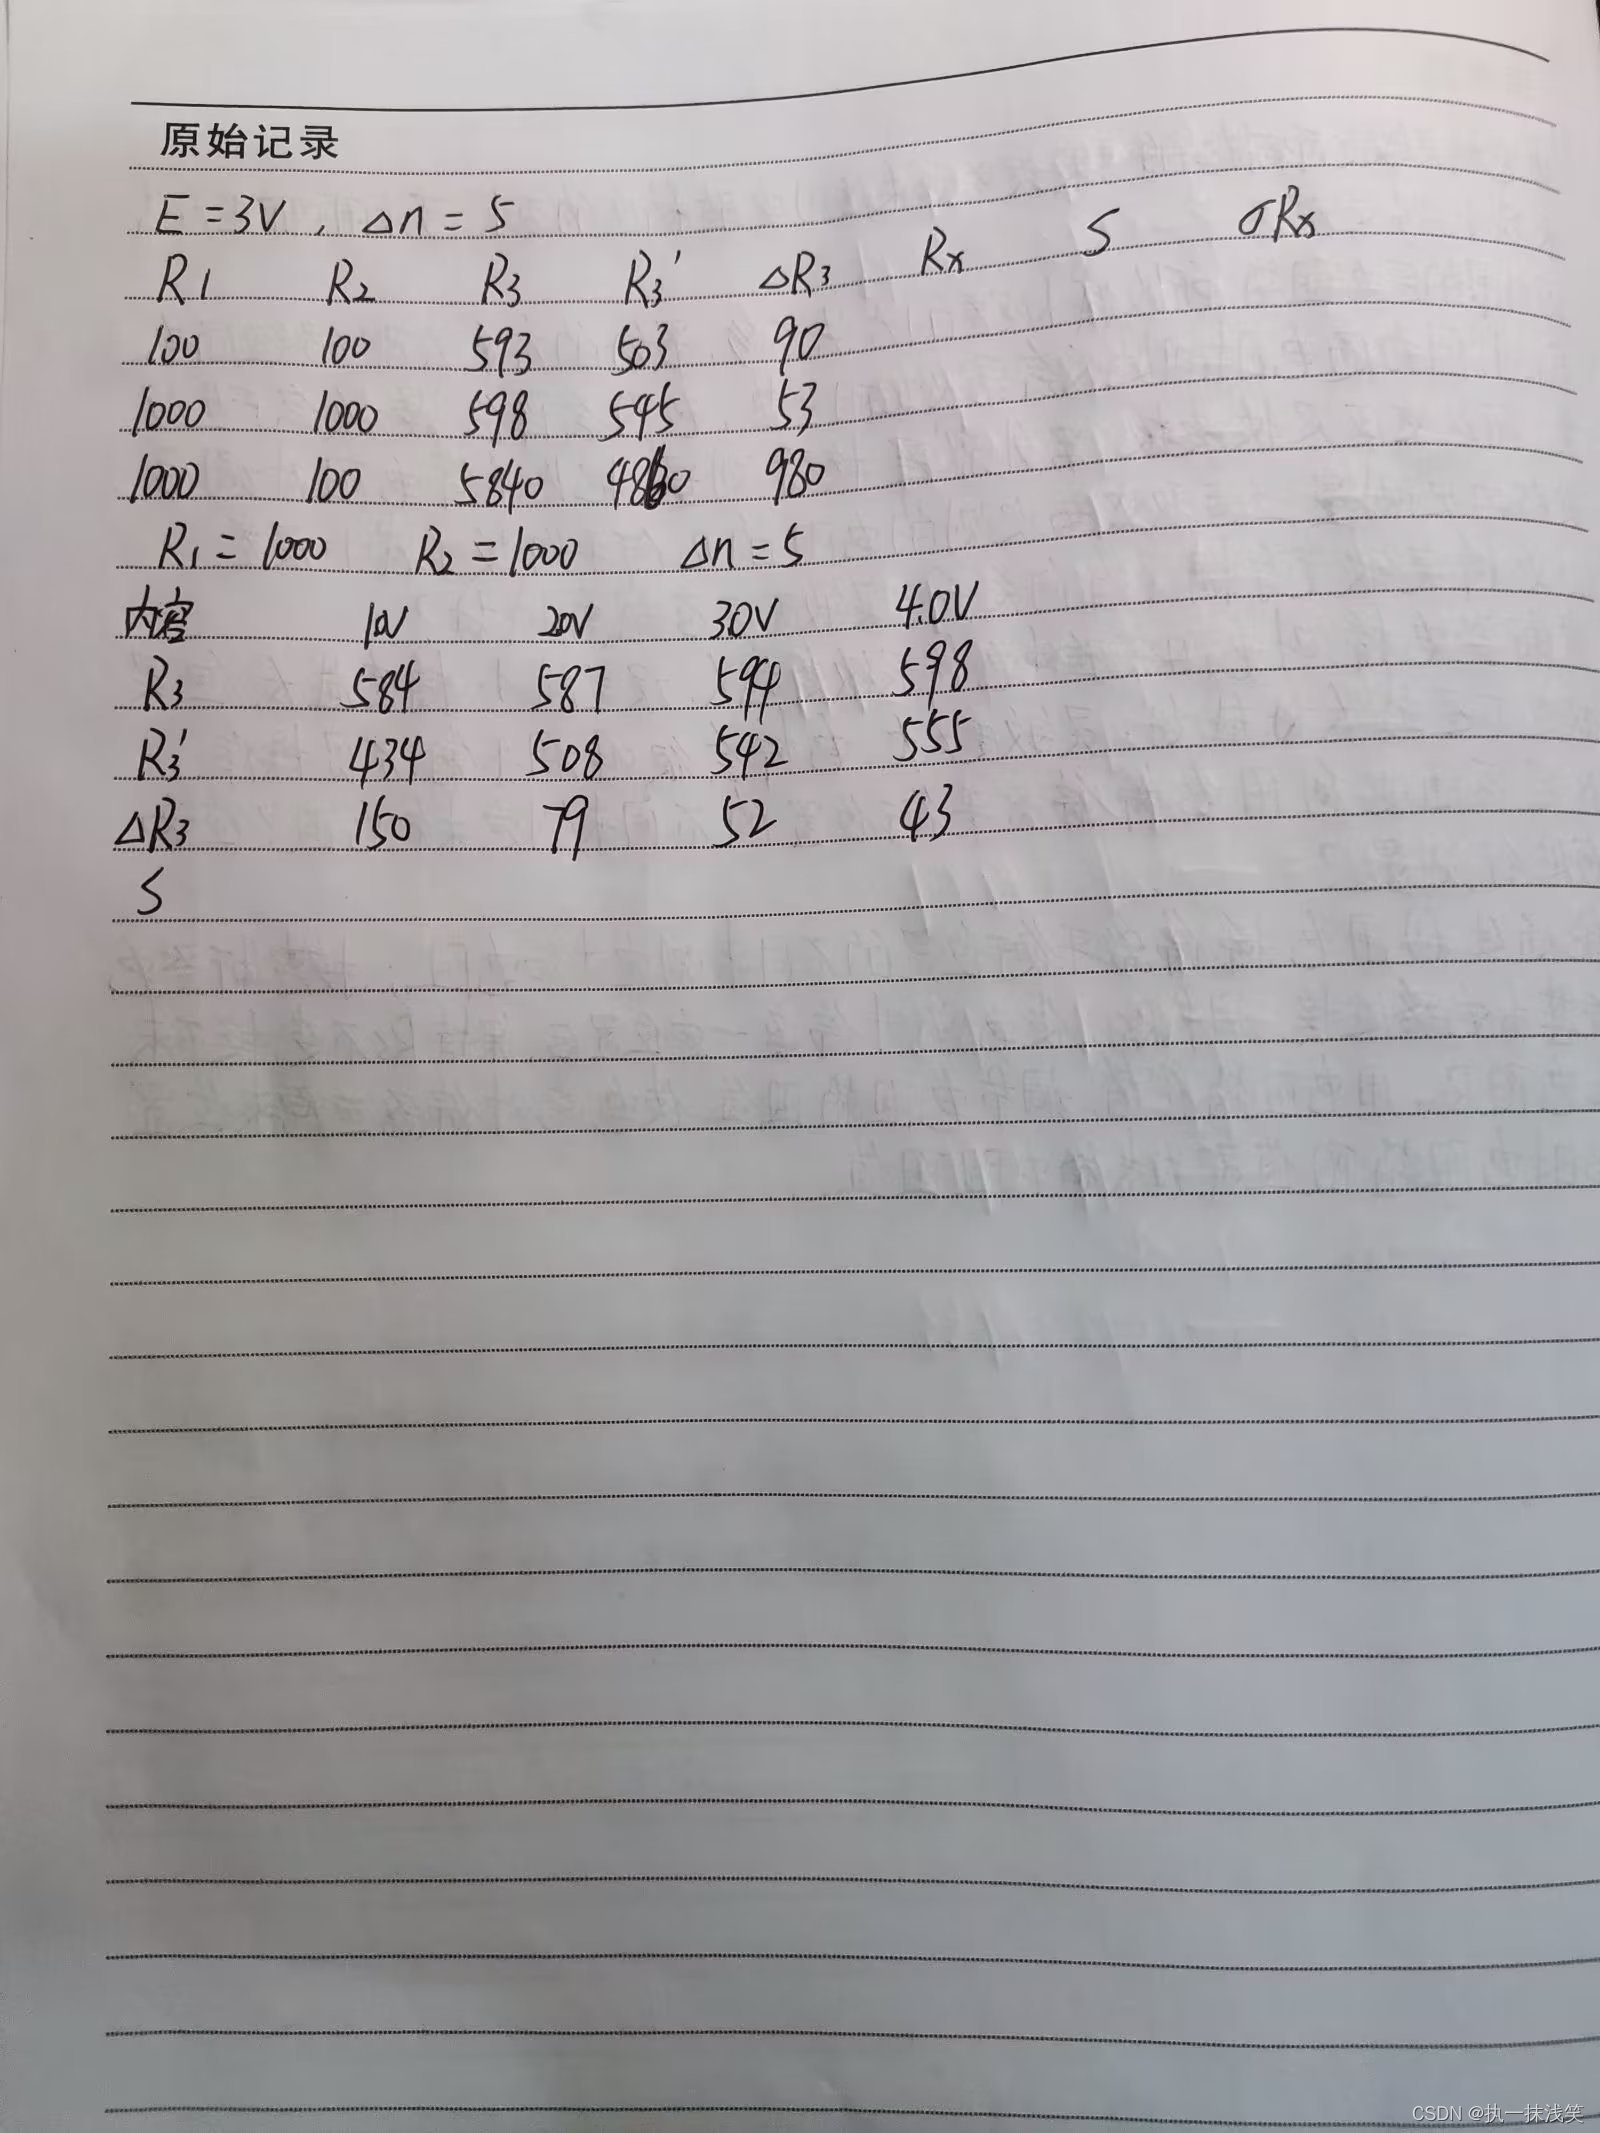 原始记录
E = 3V , Δn = 5
R1 R2 R3 R3' ΔR3 Rx S σRx
100 100 593 503 90
1000 1000 598 545 53
1000 100 5840 4860 980
R1 = 1000 R2 = 1000 Δn = 5
内容 1.0V 2.0V 3.0V 4.0V
R3 584 587 594 598
R3' 434 508 542 555
ΔR3 150 79 52 43
S
CSDN @执一抹浅笑